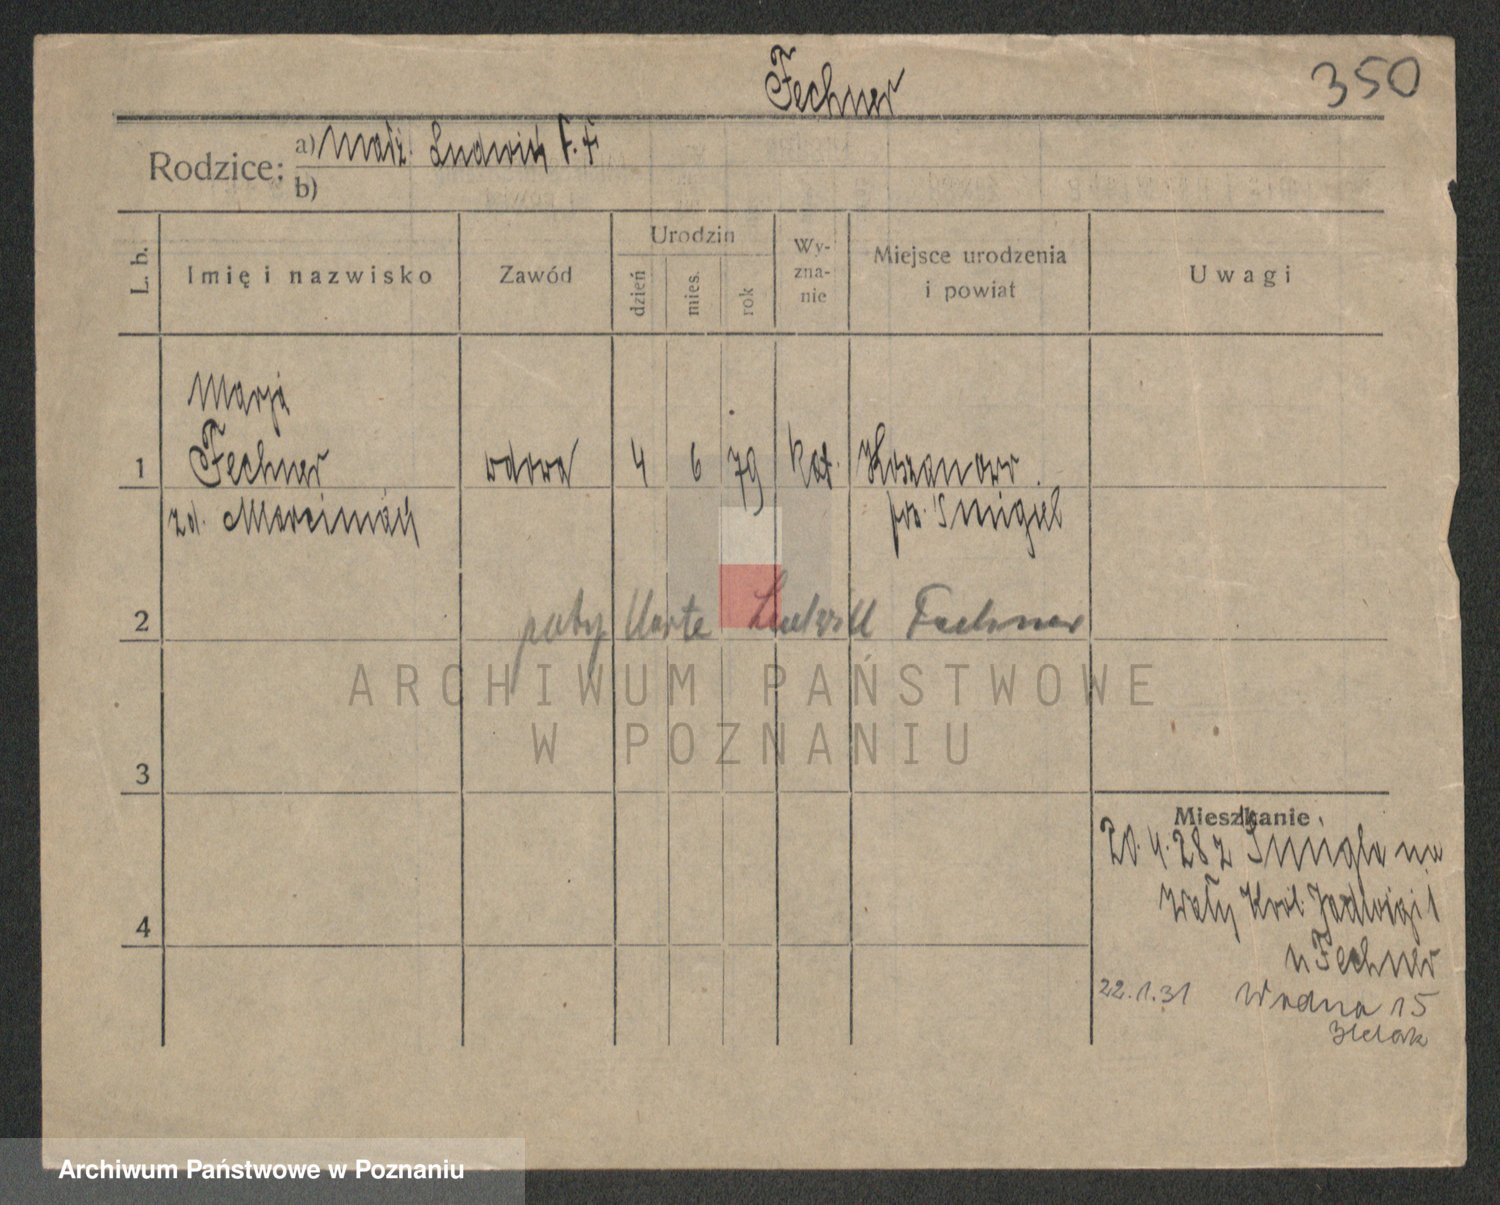 Fechner
350
Rodzice: a) Małż. Ludwik
b)
L. b.
Imię i nazwisko
Zawód
Urodzin
dzień
mies.
rok
Wy-
zna-
nie
Miejsce urodzenia
i powiat
Uwagi
Marja
1 Fechner wdowa 4 6 79 kat.
po. Śmigiel
zd.
2 Karte Fechner
ARCHIWUM PAŃSTWOWE
W POZNANIU
3
Mieszkanie
20.4.28 z Śmigla na
Wały Król. Jadwigi 1
u Fechner
4
22.1.31 Wodna 15
Archiwum Państwowe w Poznaniu